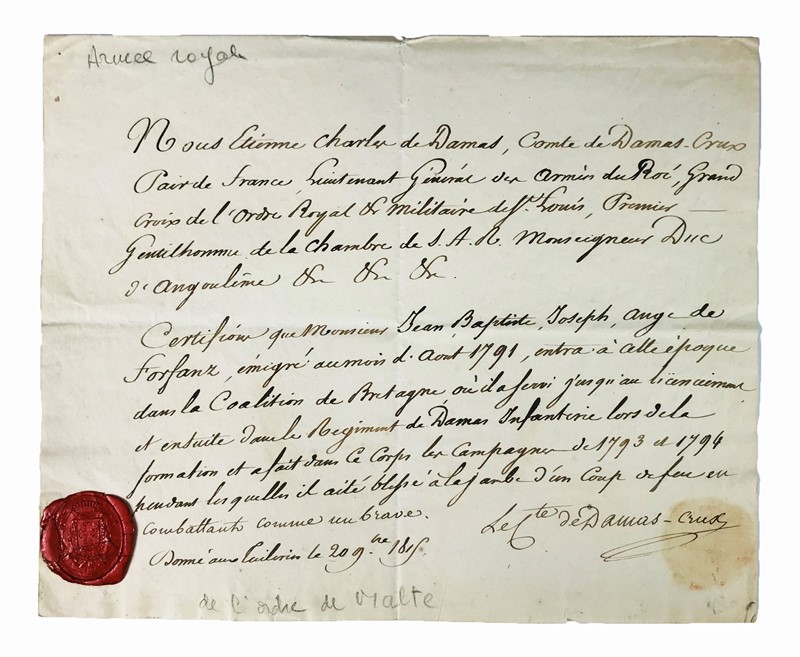 Armée royale
Nous Etienne Charles de Damas, Comte de Damas-Crux
Pair de France, Lieutenant Général des Armées du Roi, Grand
Croix de l'Ordre Royal & Militaire de St. Louis, Premier
Gentilhomme de la Chambre de S. A. R. Monseigneur Duc
d'Angoulême &c &c &c.
Certifions que Monsieur Jean Baptiste, Joseph, Ange de
Forsanz, émigré au mois d'Aout 1791, entra à cette époque
dans la Coalition de Bretagne où il a servi jusqu'au licenciement
et ensuite dans le Regiment de Damas Infanterie lors de la
formation et a fait dans ce Corps les Campagnes de 1793 et 1794
pendant lesquelles il a été blessé à la jambe d'un Coup de feu en
combattant comme un brave.
Le Cte de Damas-Crux
Donné aux Tuileries le 20 9.bre 1815.
de l'ordre de Malte